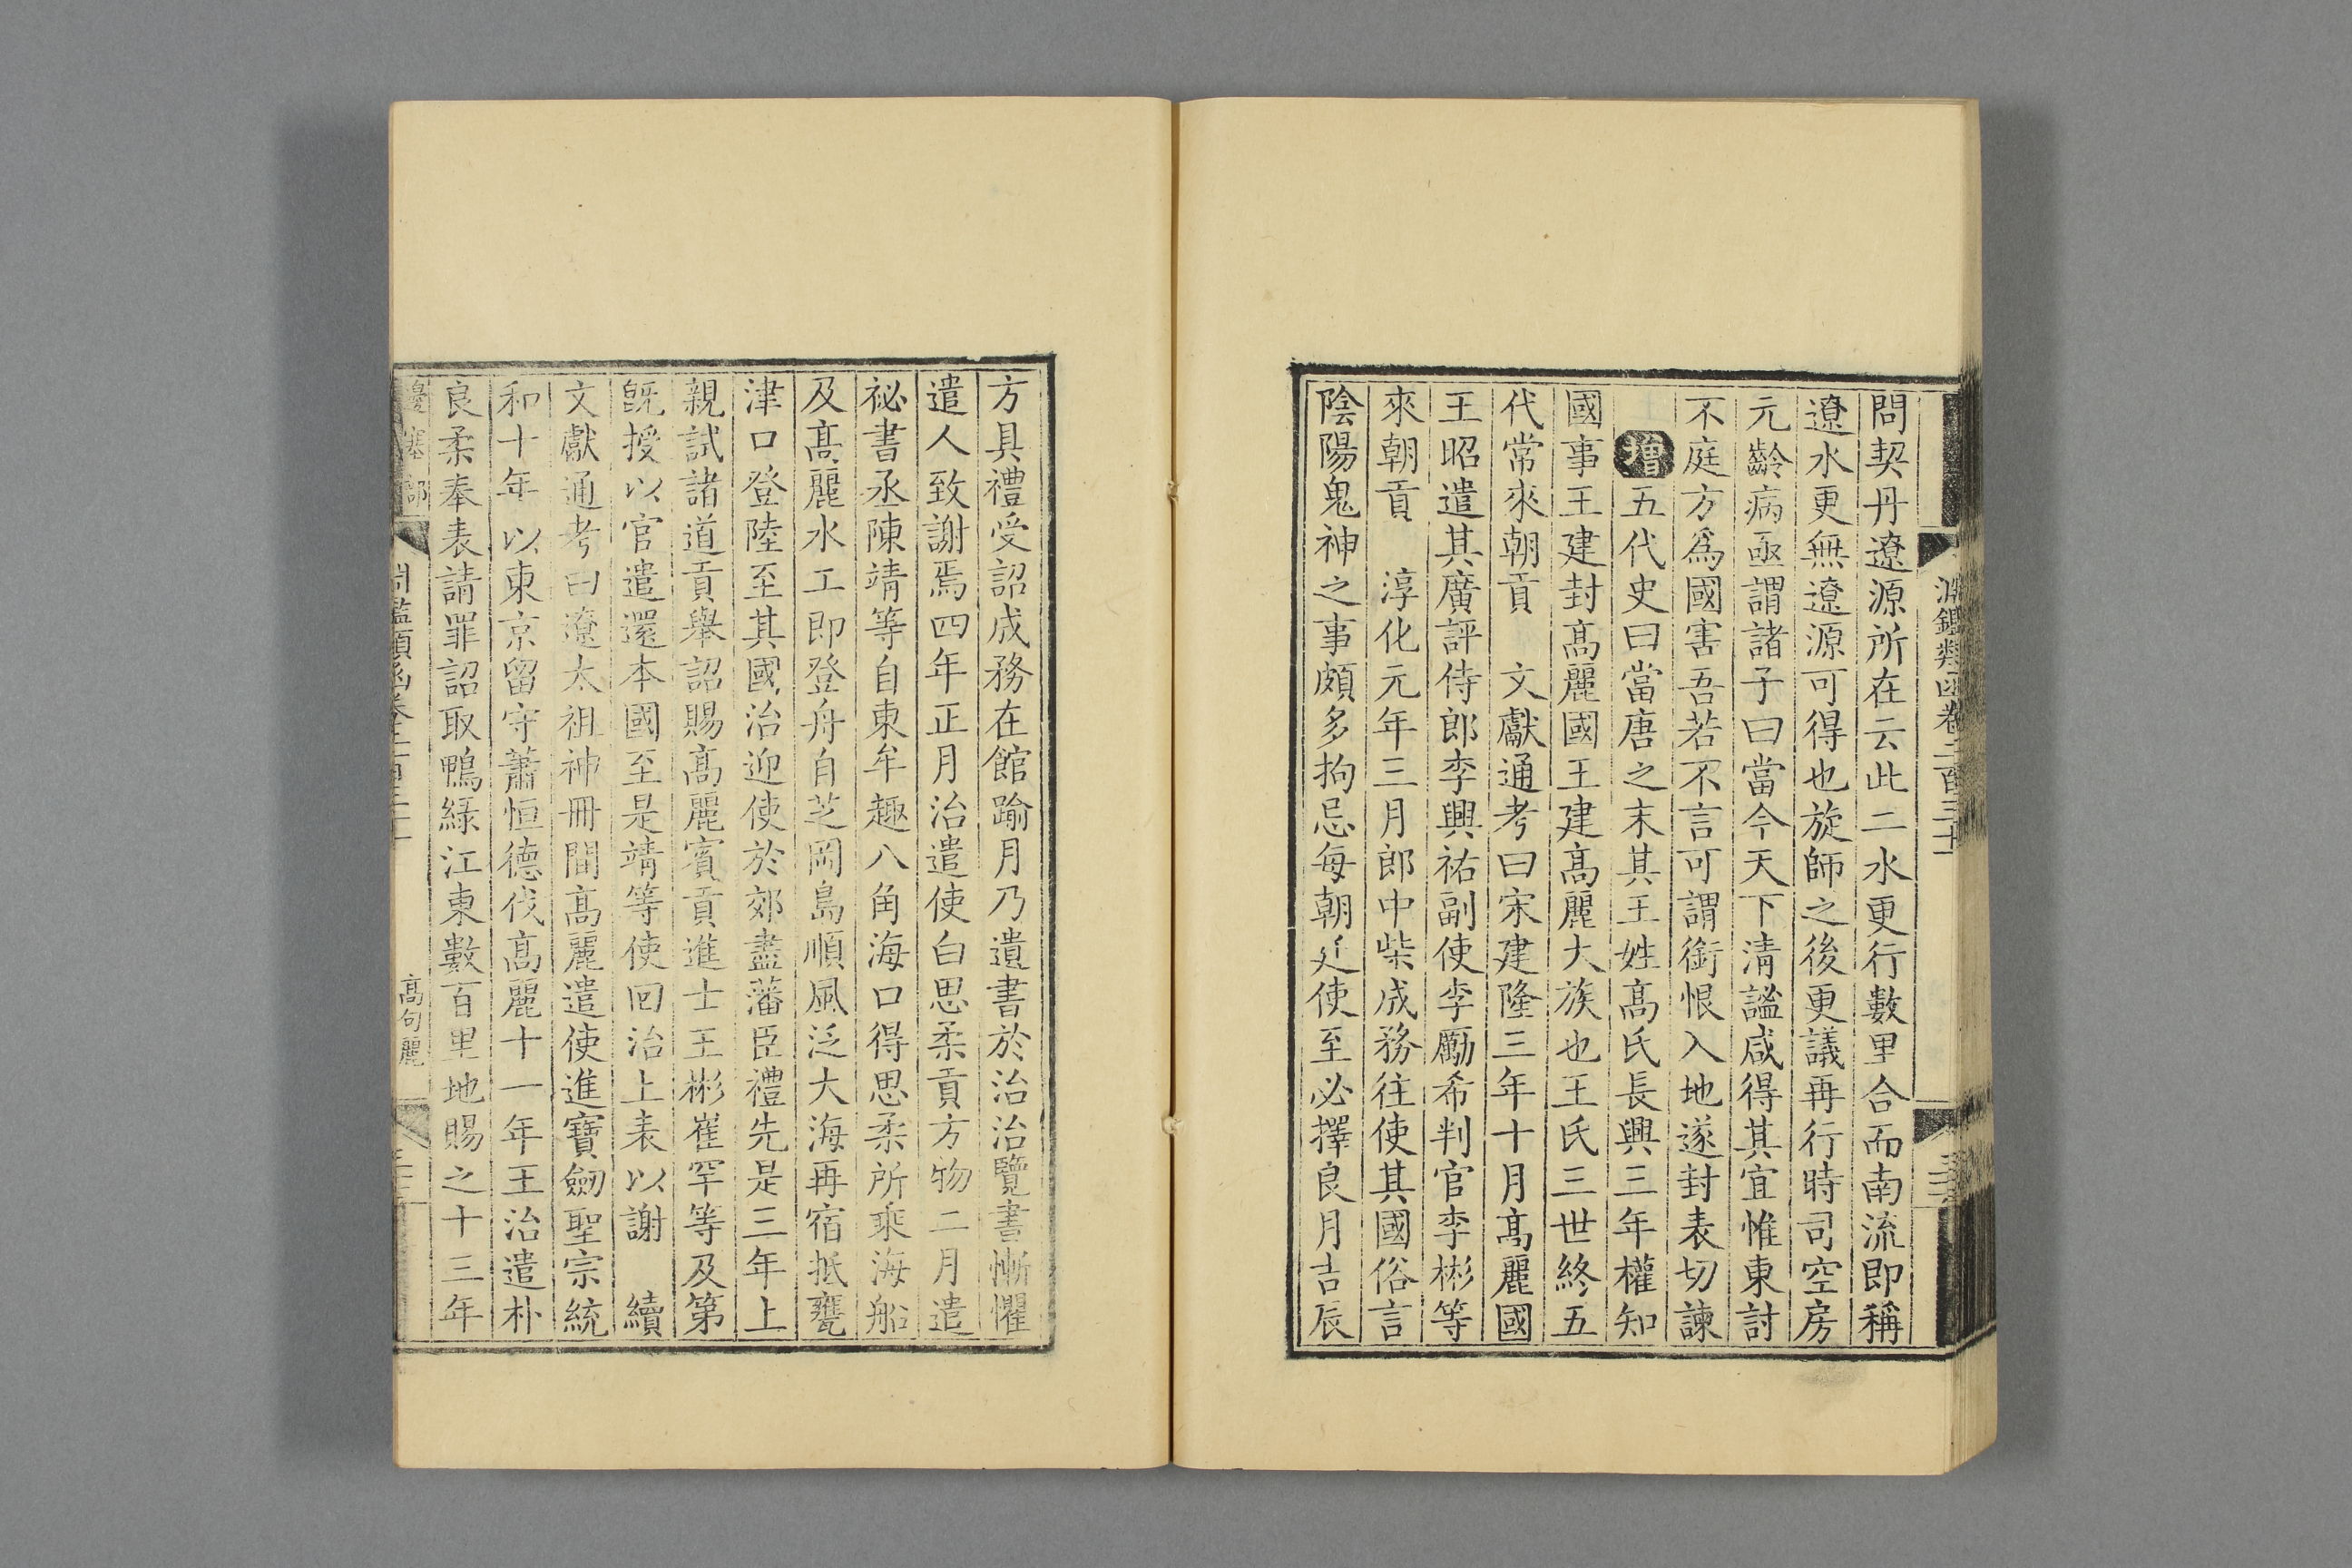 淵鑑類函卷二百三十
問契丹遼源所在云此二水更行數里合而南流即稱
遼水更無遼源可得也旋師之後更議再行時司空房
元齡病亟謂諸子曰當今天下清謐咸得其宜惟東討
不庭方爲國害吾若不言可謂銜恨入地遂封表切諫
增五代史曰當唐之末其王姓髙氏長興三年權知
國事王建封髙麗國王建髙麗大族也王氏三世終五
代常來朝貢 文獻通考曰宋建隆三年十月髙麗國
王昭遣其廣評侍郎李興祐副使李勵希判官李彬等
來朝貢 淳化元年三月郎中柴成務往使其國俗言
陰陽鬼神之事頗多拘忌每朝廷使至必擇良月吉辰
方具禮受詔成務在館踰月乃遺書於治治覽書慚懼
遣人致謝焉四年正月治遣使白思柔貢方物二月遣
祕書丞陳靖等自東牟趣八角海口得思柔所乘海船
及髙麗水工即登舟自芝岡島順風泛大海再宿抵甕
津口登陸至其國治迎使於郊盡藩臣禮先是三年上
親試諸道貢舉詔賜髙麗賓貢進士王彬崔罕等及第
旣授以官遣還本國至是靖等使回治上表以謝 續
文獻通考曰遼太祖神冊間髙麗遣使進寶劒聖宗統
和十年以東京留守蕭恒德伐髙麗十一年王治遣朴
良柔奉表請罪詔取鴨綠江東數百里地賜之十三年
邊塞部
髙句麗